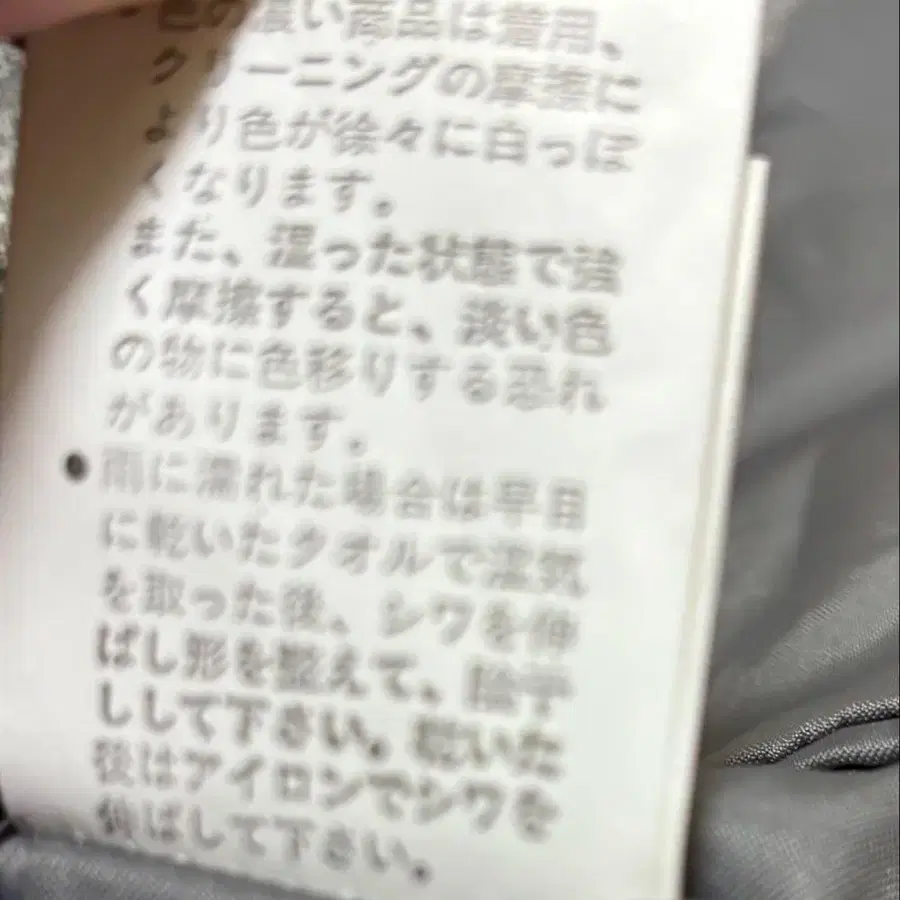 色の濃い商品は着用、
クリーニングの摩擦に
より色が徐々に白っぽ
くなります。
また、湿った状態で強
く摩擦すると、淡い色
の物に色移りする恐れ
があります。
●雨に濡れた場合は早目
に乾いたタオルで湿気
を取った後、シワを伸
ばし形を整えて、陰干
しして下さい。乾いた
後はアイロンでシワを
伸ばして下さい。